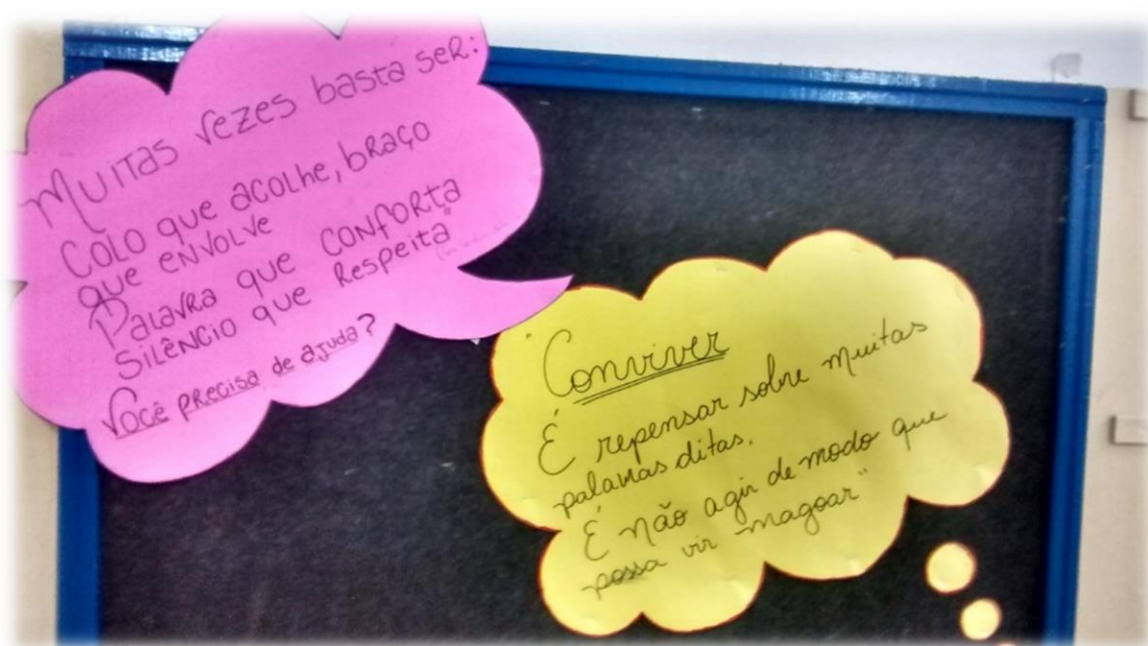 Muitas vezes basta ser:
Colo que acolhe, braço
que envolve
Palavra que conforta
Silêncio que respeita"
Você precisa de ajuda?
"Conviver
É repensar sobre muitas
palavras ditas.
É não agir de modo que
possa vir magoar"